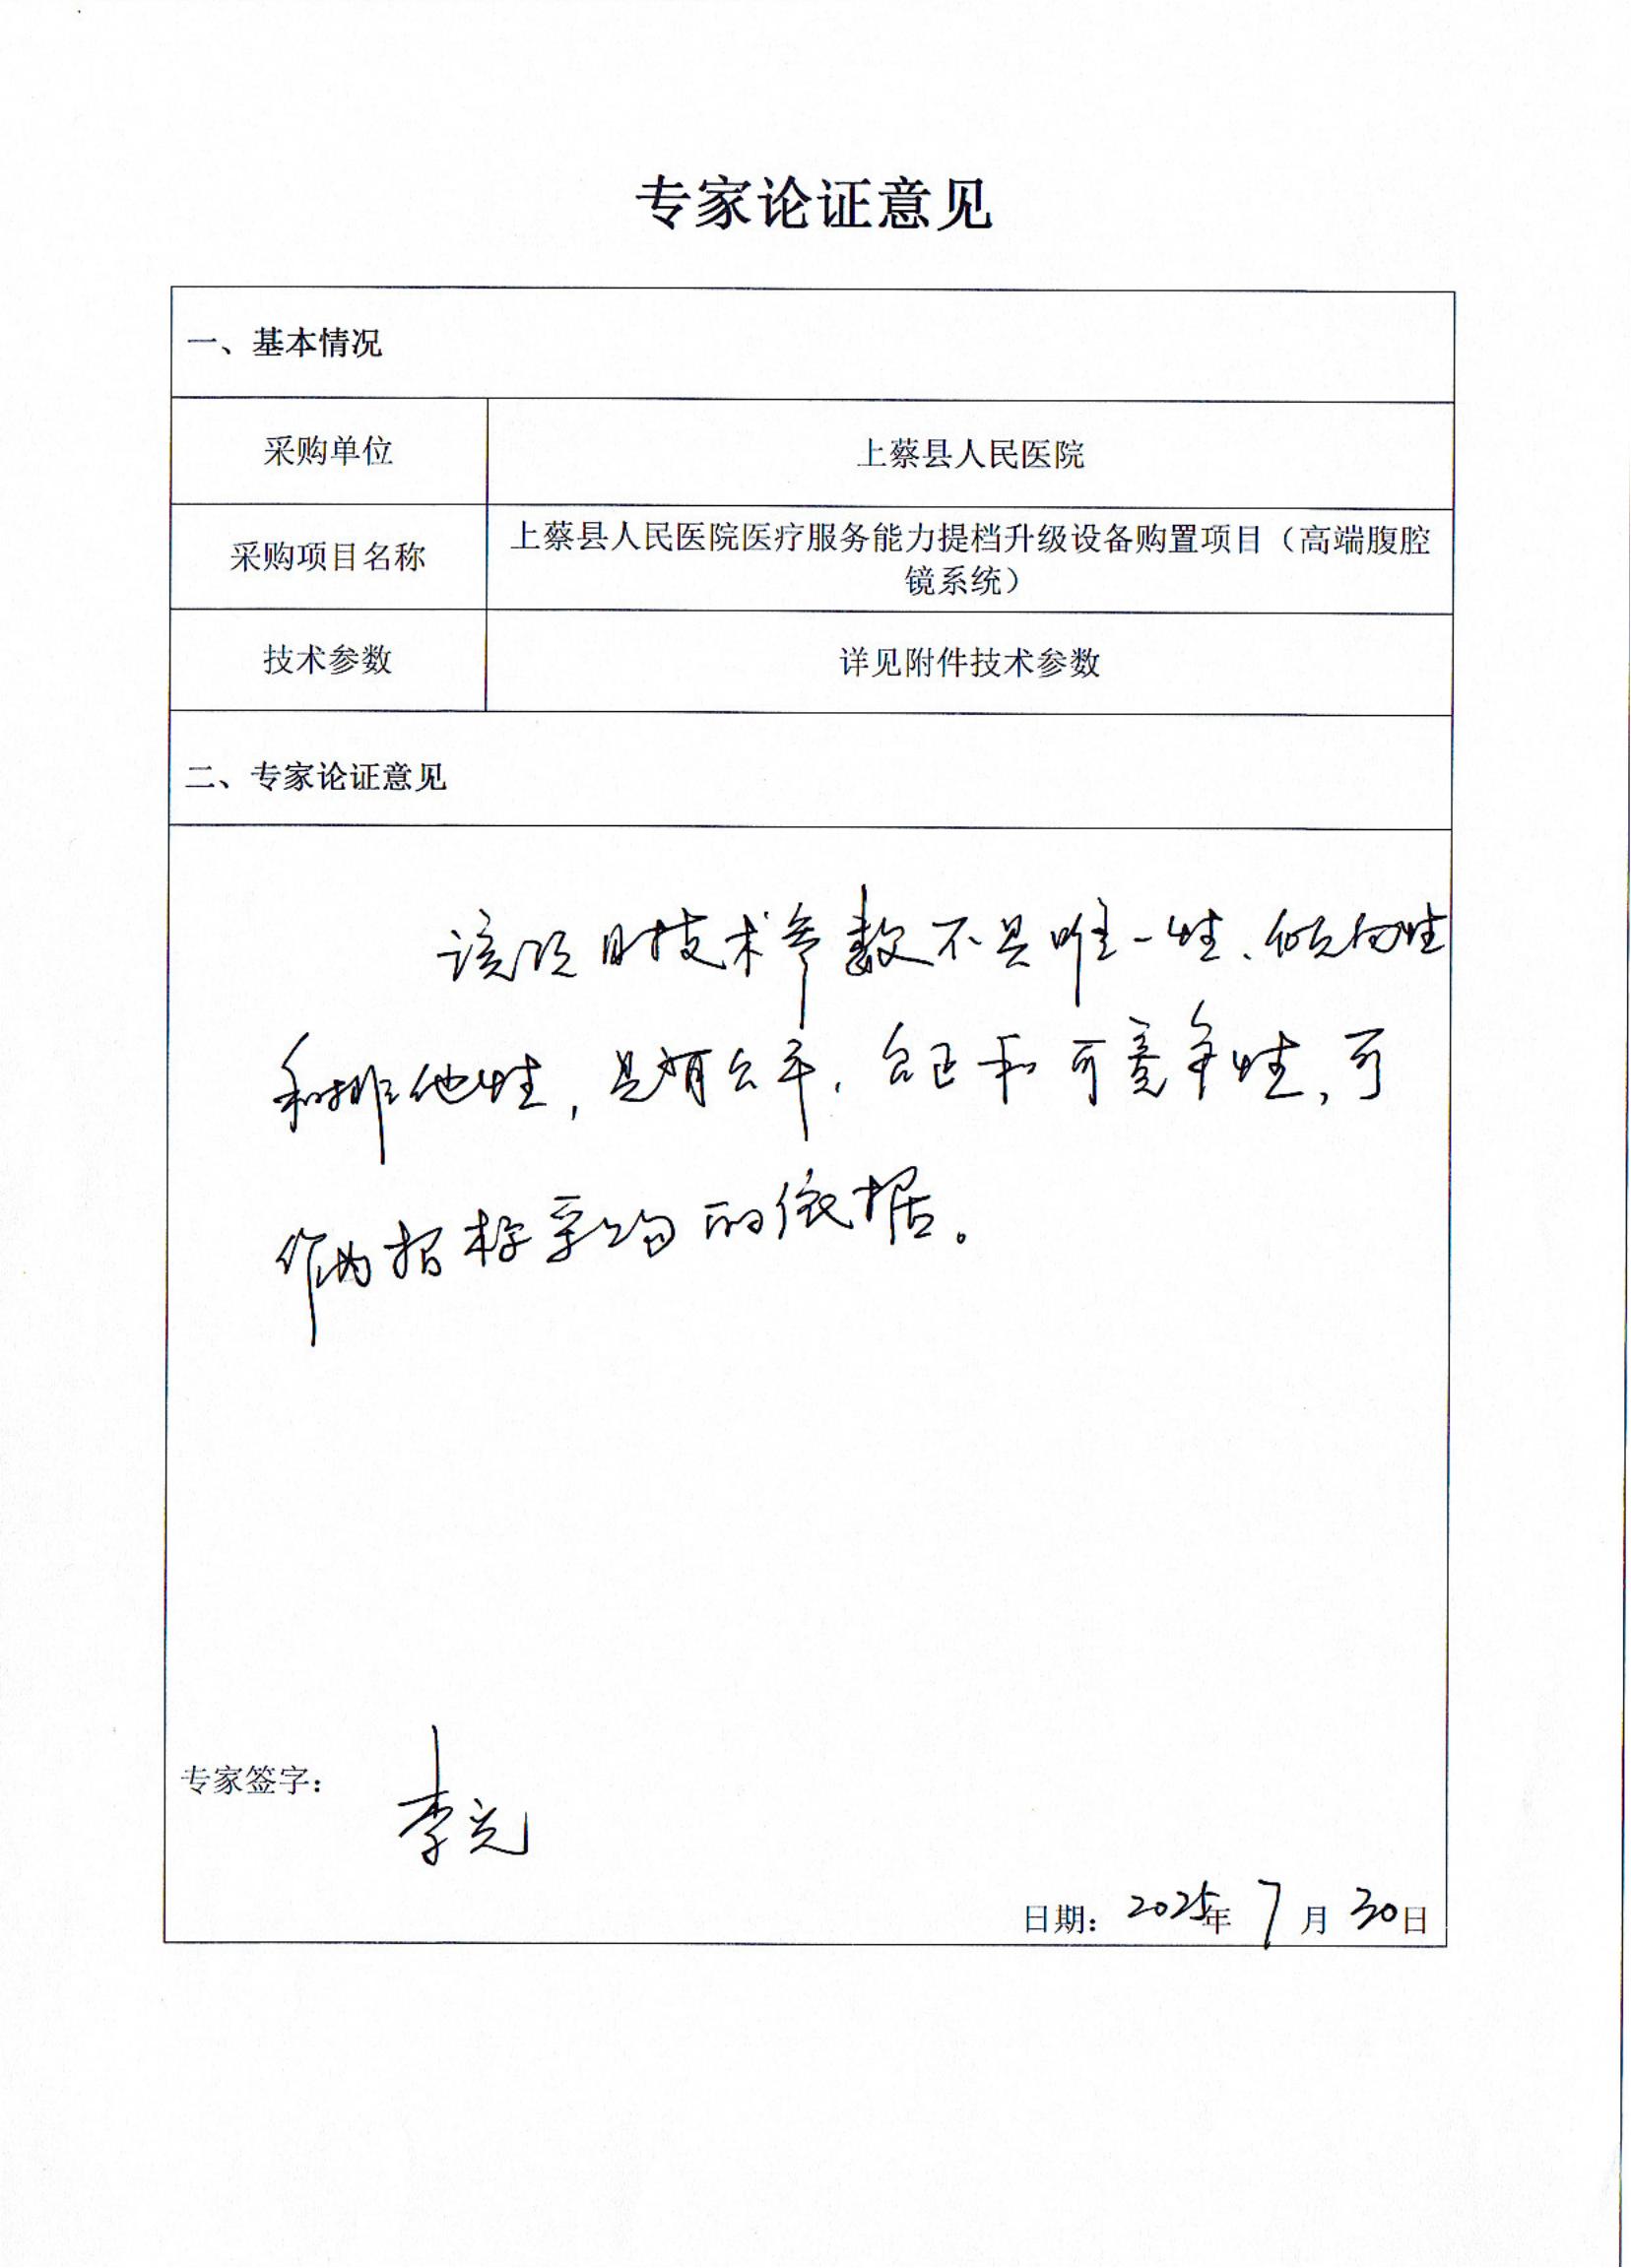 专家论证意见
一、基本情况
采购单位
上蔡县人民医院
采购项目名称
上蔡县人民医院医疗服务能力提档升级设备购置项目（高端腹腔
镜系统）
技术参数
详见附件技术参数
二、专家论证意见
该项目技术参数不具唯一性、倾向性
和排他性，具有公平，公正和可竞争性，可
作为招标采购的依据。
专家签字：
李
日期：2025年7月30日